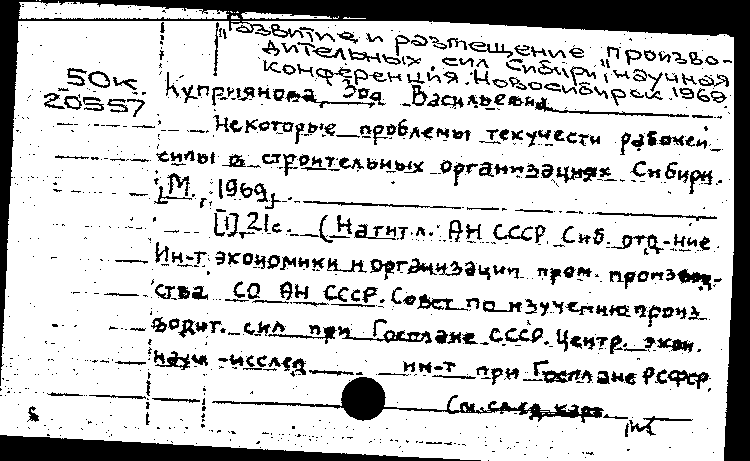 "Развитие и размещение произво-
дительных сил Сибири", научная
конференция. Новосибирск. 1969
50К.
20557
Куприянова, Зоя Васильевна
Некоторые проблемы текучести рабочей
силы в строительных организациях Сибири.
[М., 1969].
[1], 21с. (На тит.л.: АН СССР Сиб. отд-ние
Ин-т экономики и организации пром. производ-
ства СО АН СССР. Совет по изучению произ
водит. сил при Госплане СССР. Центр. экон.
научн-исслед ин-т при Госплане РСФСР.
(см. след карт.